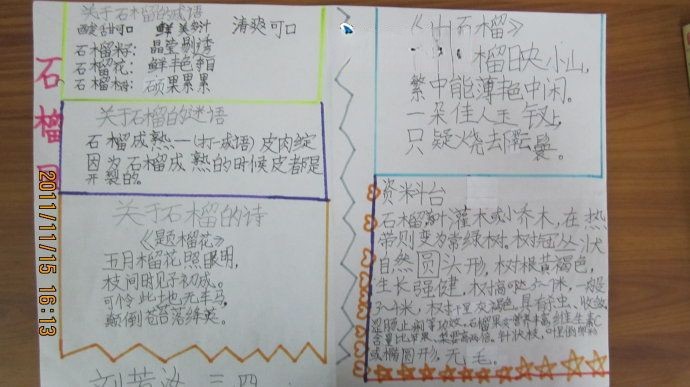 关于石榴的成语
酸甜可口 鲜美多汁 清爽可口
石榴米: 晶莹剔透
石榴花: 鲜艳夺目
石榴树: 硕果累累
石榴
关于石榴的迷语
石榴成熟一(打一成语)皮肉绽
因为石榴成熟的时候皮都是
开裂的。
关于石榴的诗
《题榴花》
五月榴花照眼明,
枝间时见子初成。
可怜此地无车马,
颠倒苍苔落绛英。
刘 三四
《山石榴》
榴映小山,
繁中能薄艳中闲。
一朵佳人玉钗上,
只疑烧却翠鬟。
资料台
石榴 灌木或小乔木,在热
带则变为常绿树。树冠丛状
自然圆头形,树根黄褐色,
生长强健,树高可达5-7米,一般
3-4米,树干呈灰褐色,具有杀虫、收敛、
涩肠止痢等功效。石榴果实营养丰富,维生素C
含量比苹果、梨要高
或椭圆形,无毛。
2011/11/15 16:13